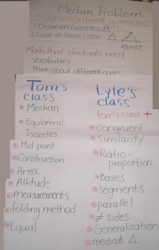 Median Problem
Solutions to different approaches
1. Draw an Isosceles △
2. Look at basic case
Math that students need
Vocabulary
Think about different cases
Tom's class
Median
Equilateral
Isosceles
Mid-point
Construction
Area
Altitude
measurements
folding method
Equal
Lyle's class
Tom's class +
congruent
Similarity
Ratio-
proportion
Bases
Segments
parallel
≠ sides
Generalization
median △